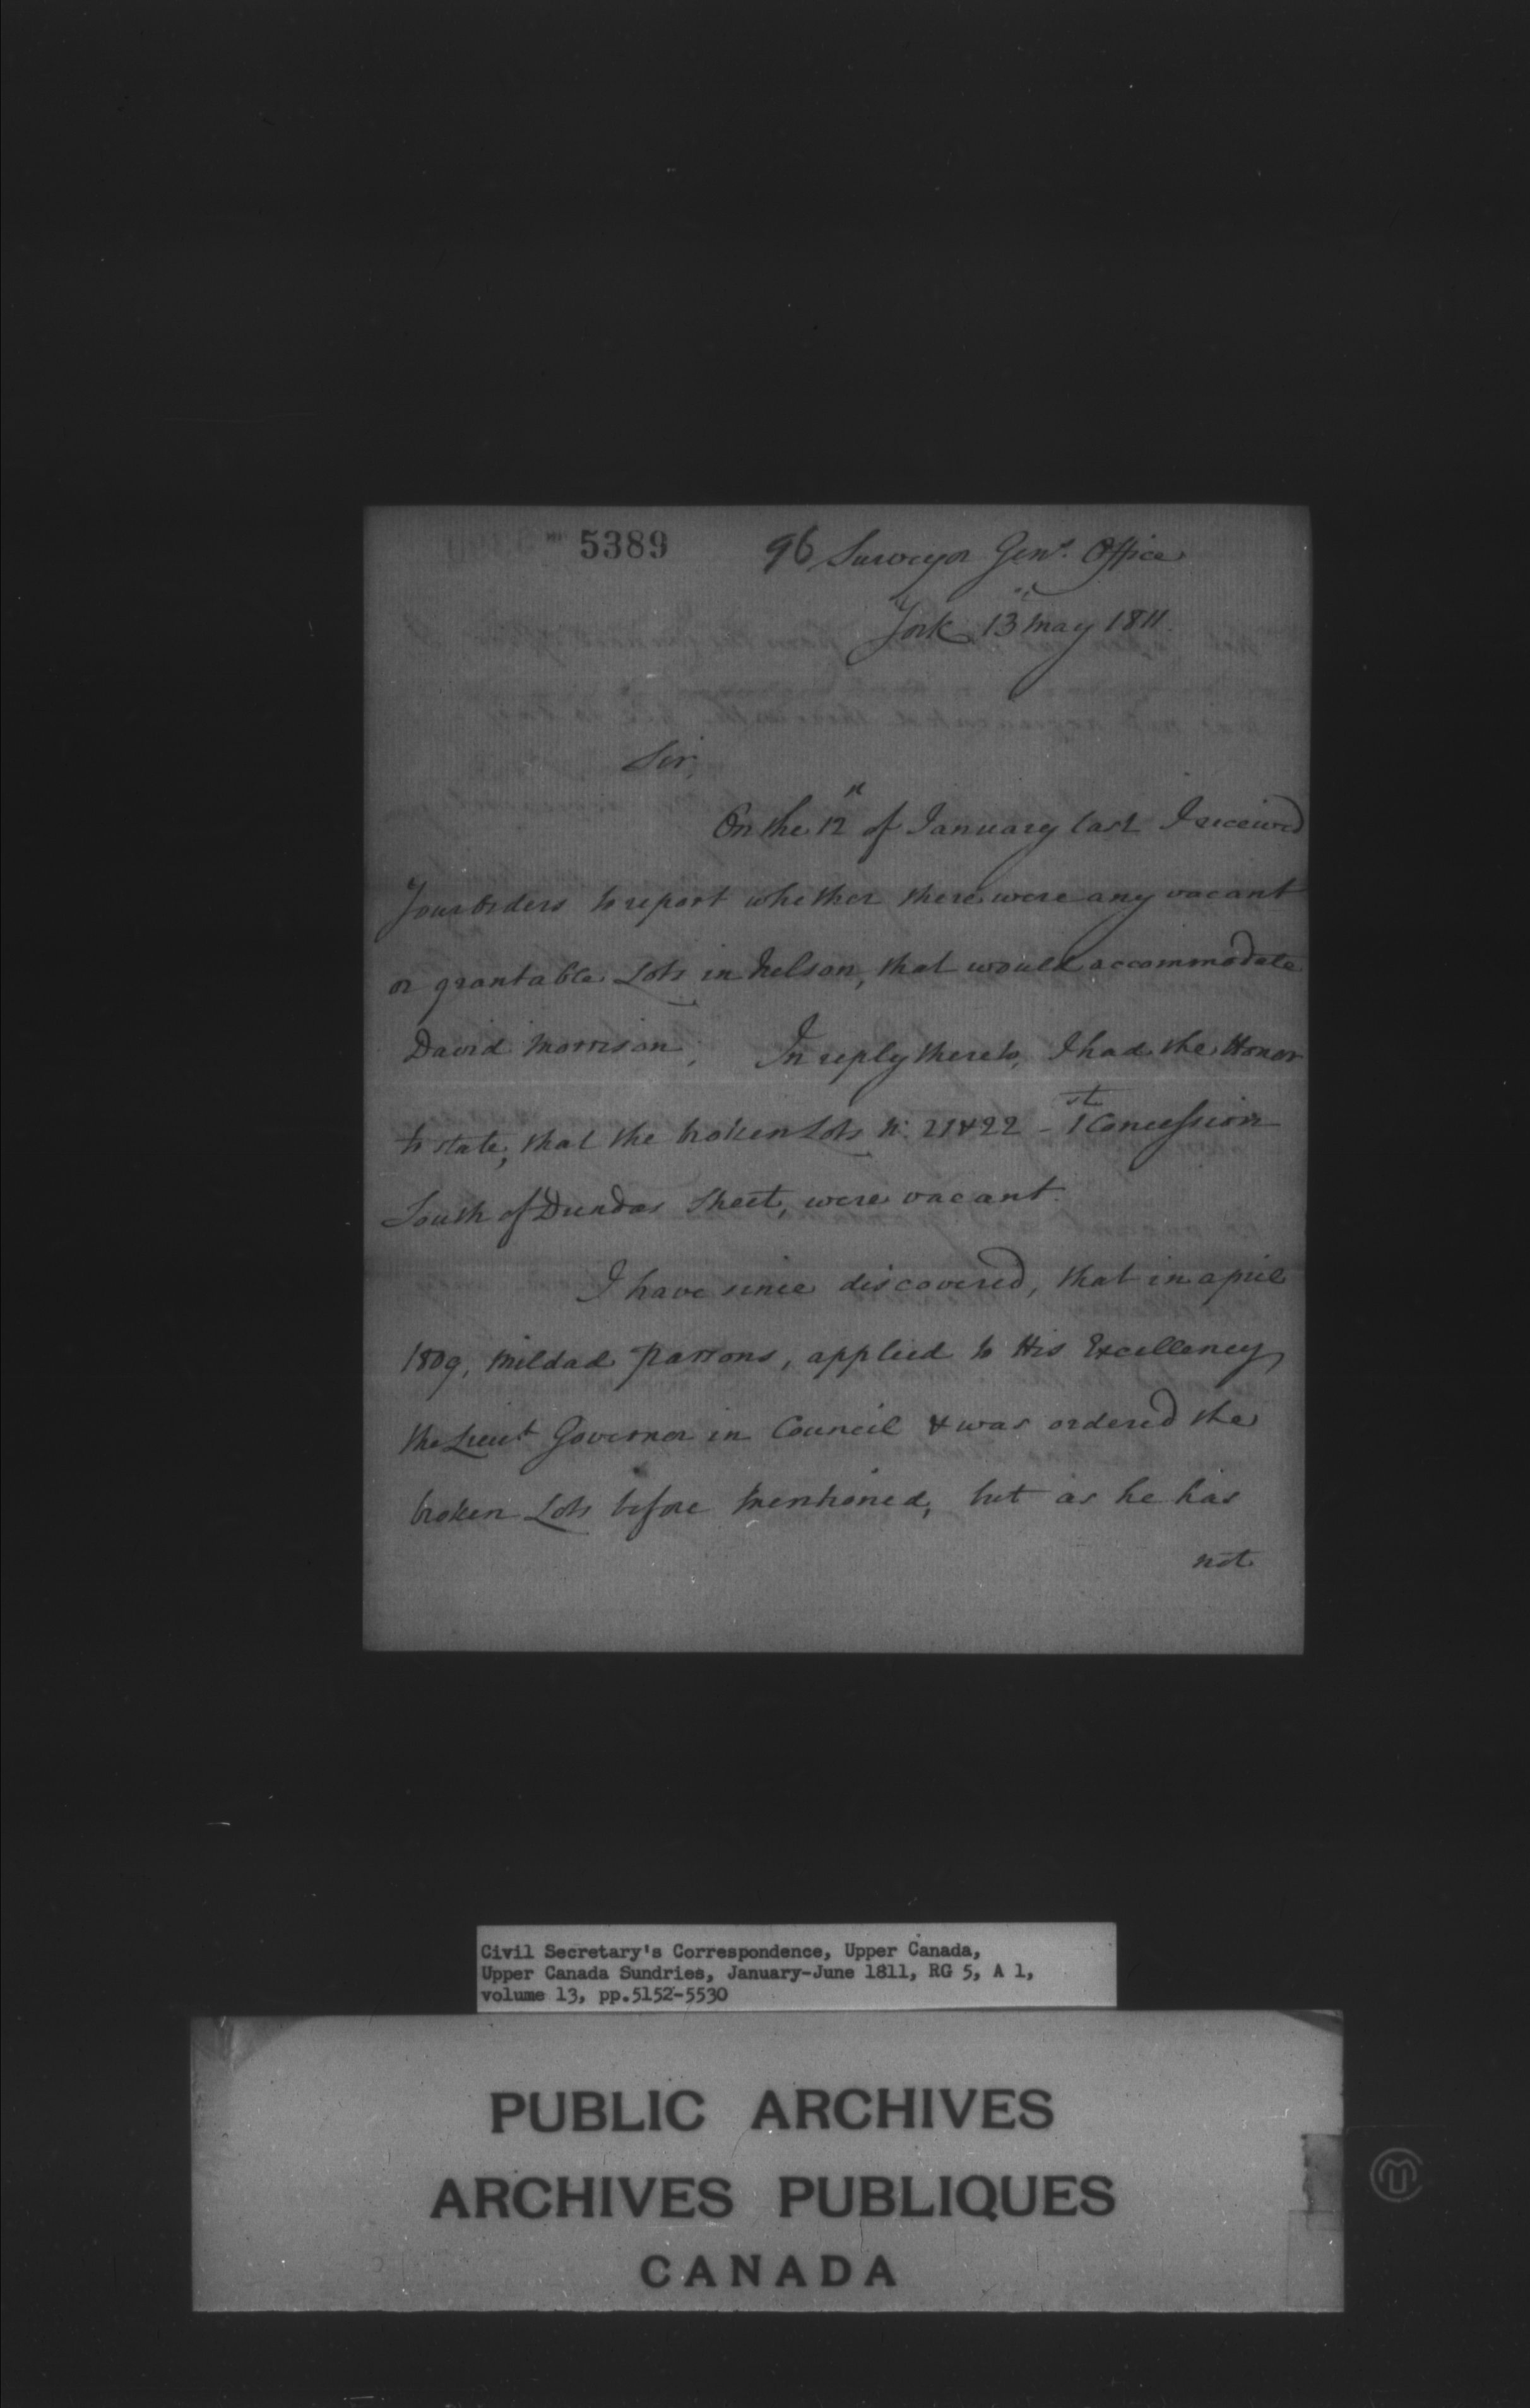 5389 96 Surveyor Genl. Office
York 13th May 1811.
Sir,
On the 12th of January last I received
Your Orders to report whether there were any vacant
or grantable Lots in Nelson, that would accommodate
David Morrison. In reply thereto, I had the Honor
to state, that the broken Lots No. 21 & 22 - 1st Concession
South of Dundas Street, were vacant.
I have since discovered, that in april
1809, Mildad Parsons, applied to His Excellency
the Lieut Governor in Council & was ordered the
broken Lots before Mentioned, but as he has
not
Civil Secretary's Correspondence, Upper Canada,
Upper Canada Sundries, January-June 1811, RG 5, A 1,
volume 13, pp.5152-5530
PUBLIC ARCHIVES
ARCHIVES PUBLIQUES
CANADA